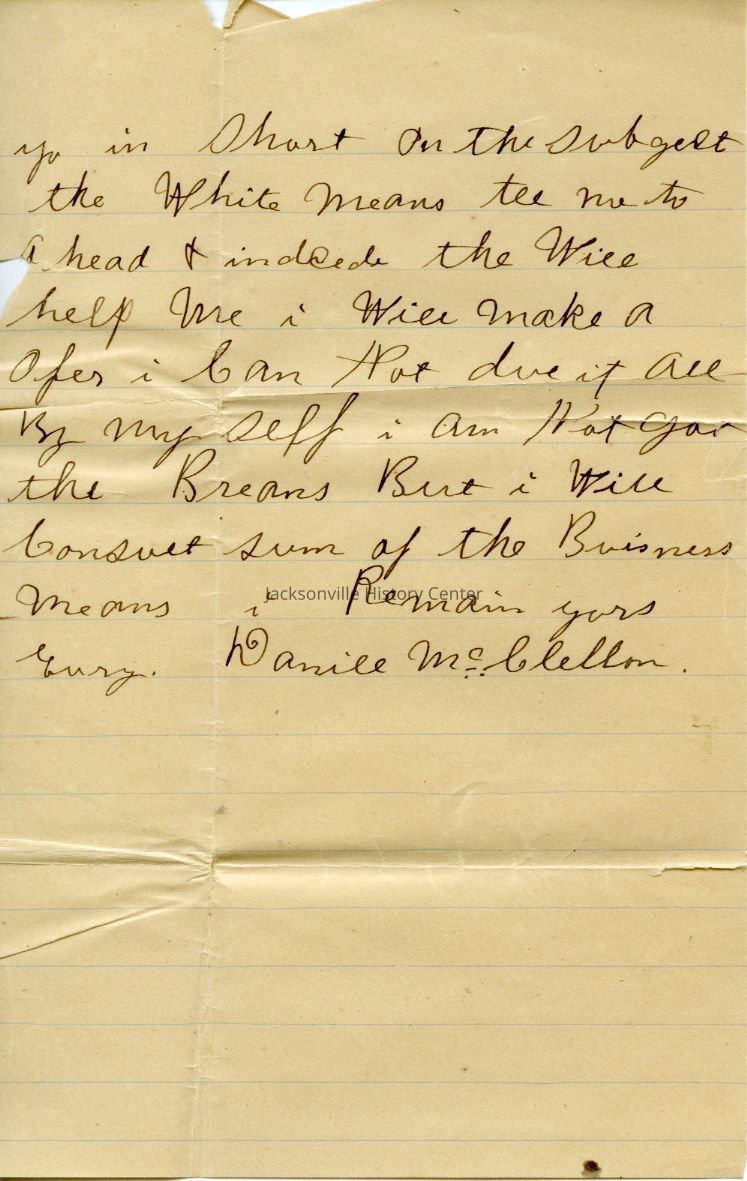 yo in Short on the Subgect
the White Means tell me to
A head & indeede the Will
help Me i Will make a
Ofer i Can Not due it All
By my self i am Not Gor
the Breans But i Will
Consuet sum of the Buisness
Means i Remain yors
Eury. Daniel Mc. Clellon.
Jacksonville History Center